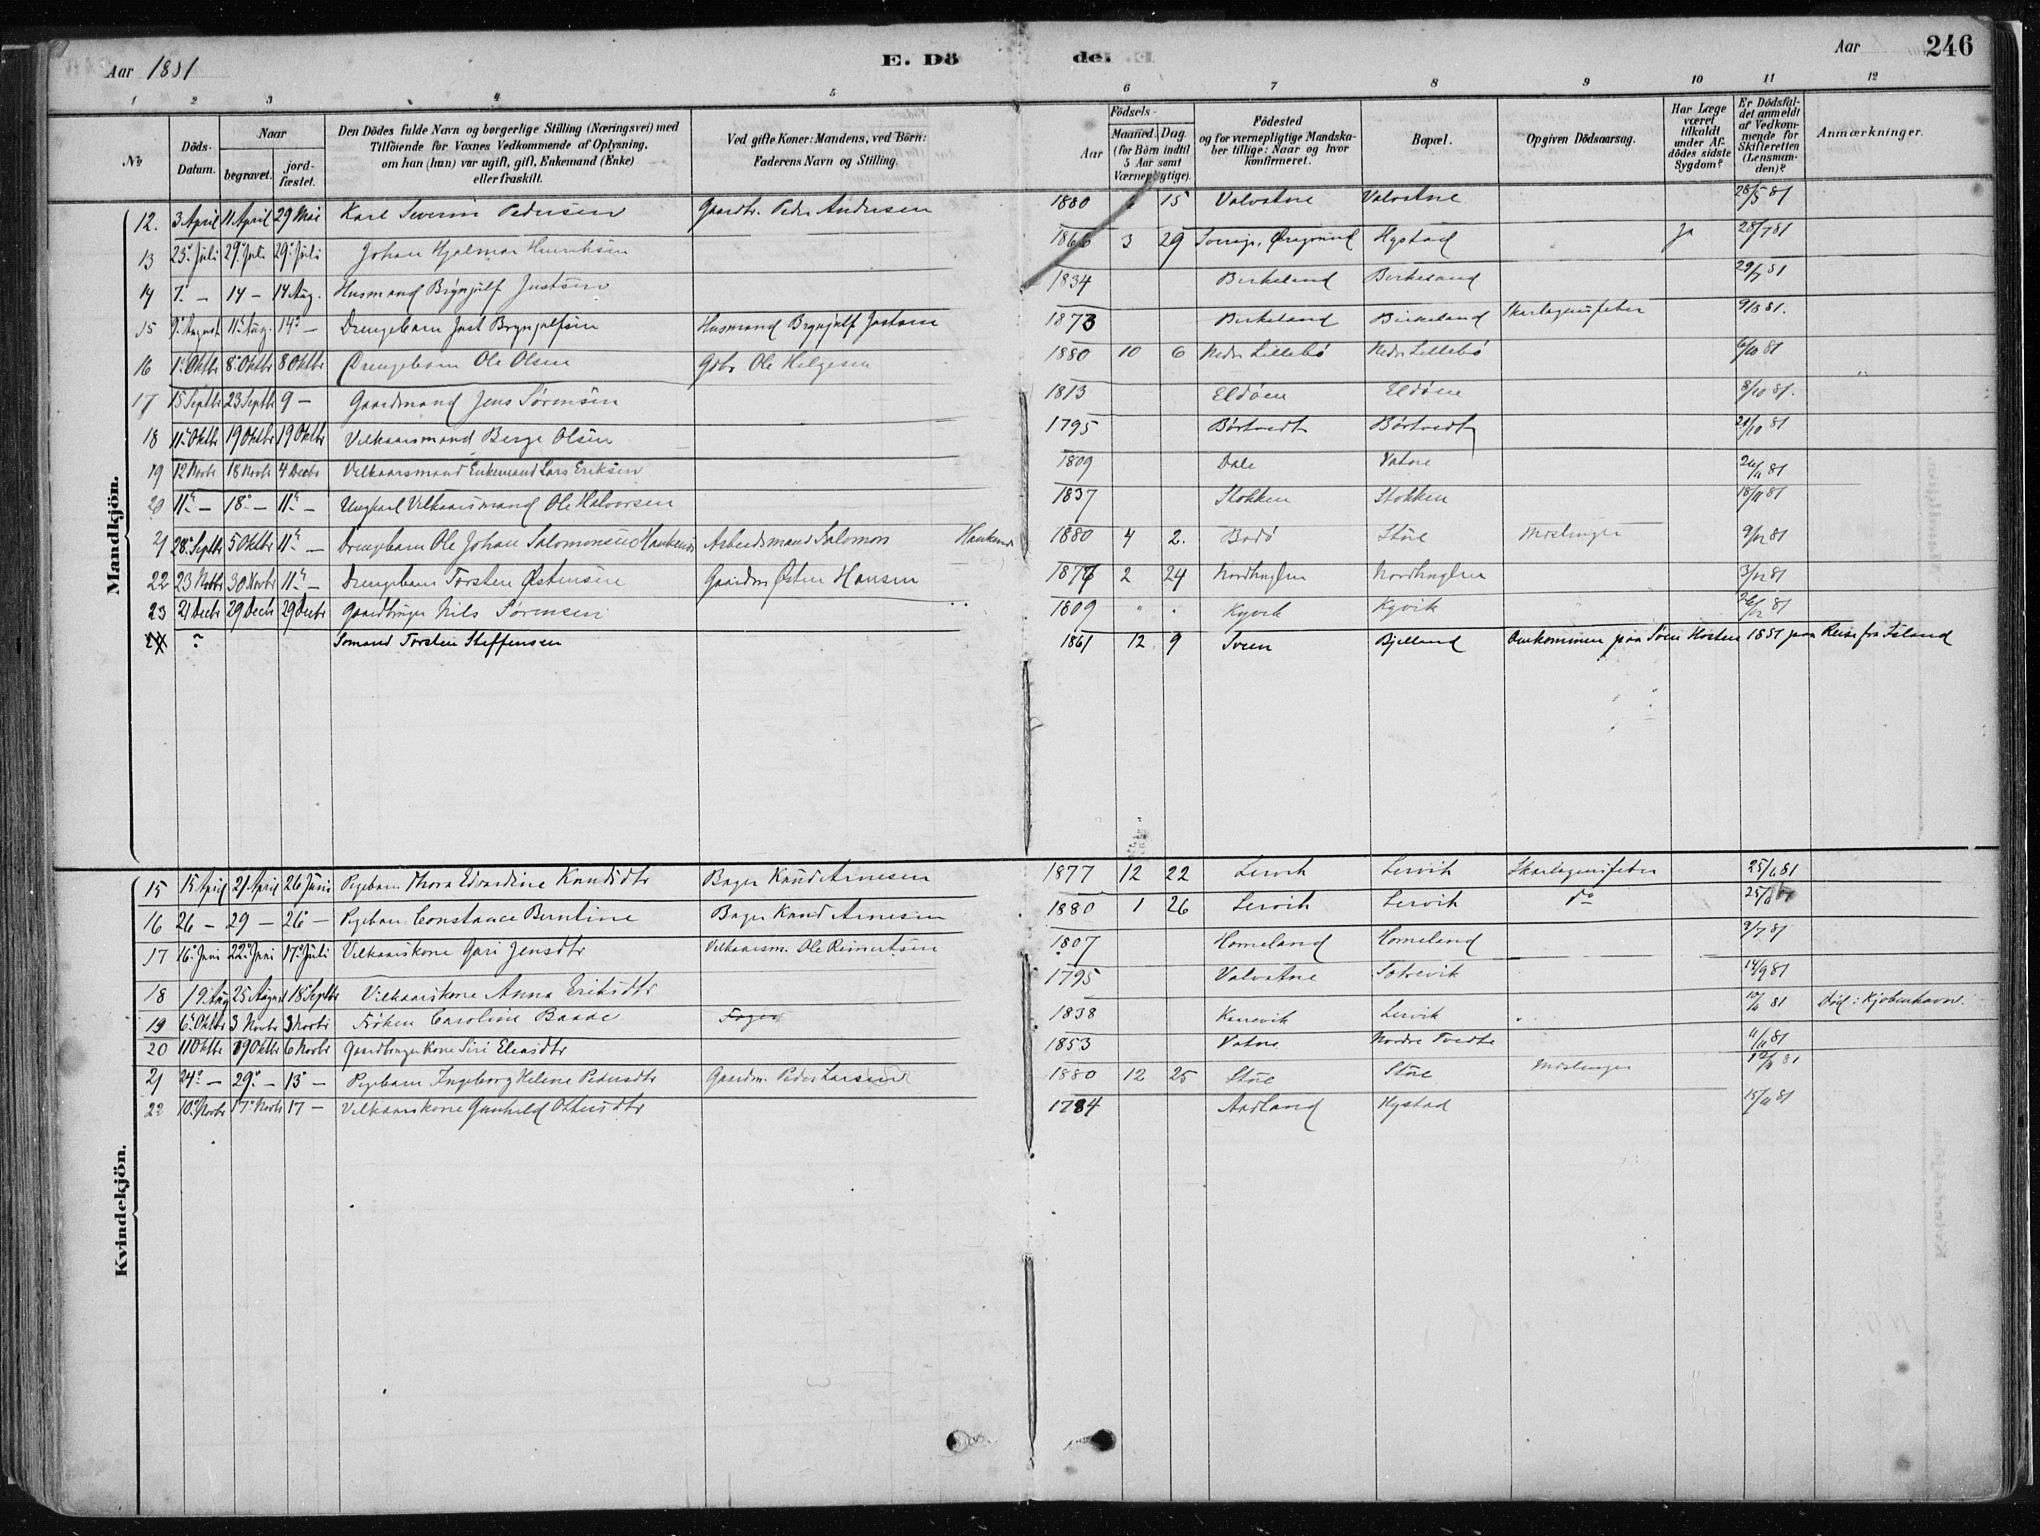 Aar 1881 E. Dö de. Aar 246
1 2 3 4 5 6 7 8 9 10 11 12
No Döds-Datum. Naar begravet. jord-fæstet. Den Dödes fulde Navn og borgerlige Stilling (Næringsvei) med Tilföiende for Voxnes Vedkommende af Oplysning, om han (hun) var ugift, gift, Enkemand (Enke) eller fraskilt. Ved gifte Koner: Mandens, ved Börn: Faderens Navn og Stilling. Födsels- Aar Maaned. Dag. (for Börn indtil 5 Aar samt Værnepligtige). Födested og for værnepligtige Mandskaber tillige: Naar og hvor konfirmeret. Bopæl. Opgiven Dödsaarsag. Har Læge været tilkaldt under Afdödes sidste Sygdom? Er Dödsfaldet anmeldt af Vedkommende for Skifteretten (Lensmanden)? Anmærkninger.
Mandkjön.
12. 3 April 11 April 29 Mai Karl Severin Pedersen Gaardbr. Peder Andersen 1880 15 Valvatne Valvatne 28/5 81
13 23 Juli 29 Juli 29 Juli Johan Hjalmar Henriksen 1866 3 29 Hystad Ja 28/7 81
14 7 - 14 - 14 Aug. Husmand Brynjulf Justsen 1834 Birkeland Birkeland 29/7 81
15 9 August 11 Aug. 14 - Drengebarn Just Brynjulfsen Husmand Brynjulf Justsen 1873 Birkeland Birkeland Skarlagensfeber 9/8 81.
16 1 Oktbr 8 Oktbr 8 Oktbr Drengebarn Ole Olsen Gbr Ole Helgesen 1880 10 6 Nedr Lillebö Nedr Lillebö 6/10 81
17 15 Septbr 23 Septbr 9 - Gaardmand Jens Sörensen 1813 Eldöen Eldöen 8/10 81.
18 11 Oktbr 19 Oktbr 19 Oktbr Vilkaarsmand Berge Olsen 1795 Börtvedt Börtvedt 21/10 81
19 12 Novbr 18 Novbr 4 Decbr Vilkaarsmand Enkemand Lars Eriksen 1809 Dale Vatne 26/11 81
20 11 - 18 - 11 - Ungkarl Vilkaarsmand Ole Halvorsen 1837 Stokken Stokken 18/11 81
21 28 Septbr 5 Oktbr 11 - Drengebarn Ole Johan Salomonsen Arbeidsmand Salomon 1880 4 2. Bodö Störe Meslinger 9/12 81
22 23 Novbr 30 Novbr 11 - Drengebarn Torsten Östensen Gaardm. Östen Hansen 1876 2 24 3/12 81
23 21 Decbr 29 Decbr 29 Decbr Gaardbruger Nils Sörensen 1809 " " Kyvik Kyvik 26/12 81
24. ? Sömand Torsten Steffensen 1861 12 9 Sveen Bjelland Omkommen paa Söen Hösten 1881 paa Reise fra Island
Kvindekjön.
15 15 April 21 April 26 Juni Pigebarn Thora Edvardine Knudsdtr Bager Knud Arnesen 1877 12 22 Lervik Lervik Skarlagensfeber 25/6 81
16 26 - 29 - 26 - Pigebarn Constance Berntine Bager Knud Arnesen 1880 1 26 Lervik Lervik do 25/6 81
17 16 Juni 22 Juni 17 Juli Vilkaarskone Guri Jensdtr Vilkaarsm. Ole Reinertsen 1807 Homeland Homeland 9/7 81
18 19 Aug 25 August 18 Septbr Vilkaarskone Anna Eriksdtr 1795 Valvatne Sotrevik 14/9 81
19 6 Oktbr 3 Novbr 3 Novbr Fröken Caroline Baade 1838 Lervik 10/11 81 Död i Kjöbenhavn.
20 11 Oktbr 19 Oktbr 6 Novbr Gaardbruger Kone Siri Eleasdtr 1853 Vatne Nordre Tvedte 11/11 81
21 24 - 29 - 13 - Pigebarn Ingeborg Helene Pedersdtr Gaardm. Peder Larsen 1880 12 25 Störe Störe Meslinger 12/11 81
22 10 Novbr 17 Novbr 17 - Vilkaarskone Gunhild Ottersdtr 1784 Aadland Hystad 15/11 81